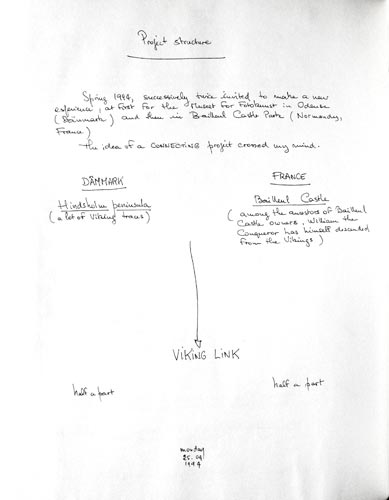 Project structure
Spring 1994, successively twice invited to make a new
experience, at first for the Museet For Fotokunst in Odense
(Dänmark) and then in Bailleul Castle Park (Normandy,
France)
The idea of a CONNECTING project crossed my mind.
DÄNMARK
Hindsholm peninsula
(a lot of Viking traces)
FRANCE
Bailleul Castle
(among the ancestors of Bailleul
Castle owners, William the
Conqueror has himself descended
from the Vikings)
VIKING LINK
half a part
half a part
monday
25.04
1994